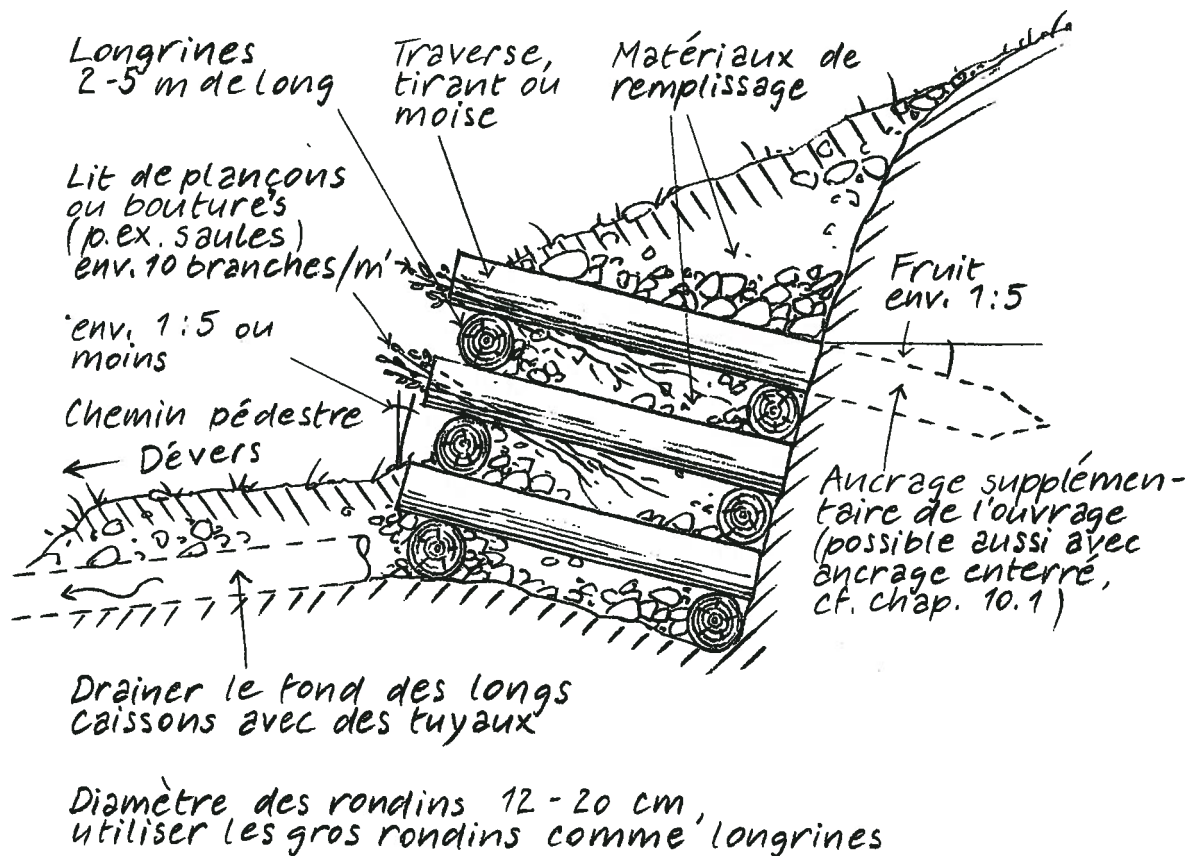 Longrines
2-5 m de long
Traverse,
tirant ou
moise
Matériaux de
remplissage
Lit de plançons
ou boutures
(p.ex. saules)
env. 10 branches/m'
env. 1:5 ou
moins
Chemin pédestre
← Dévers
Fruit
env. 1:5
Ancrage supplémen-
taire de l'ouvrage
(possible aussi avec
ancrage enterré,
cf. chap. 10.1)
Drainer le fond des longs
caissons avec des tuyaux
Diamètre des rondins 12 - 20 cm,
utiliser les gros rondins comme longrines